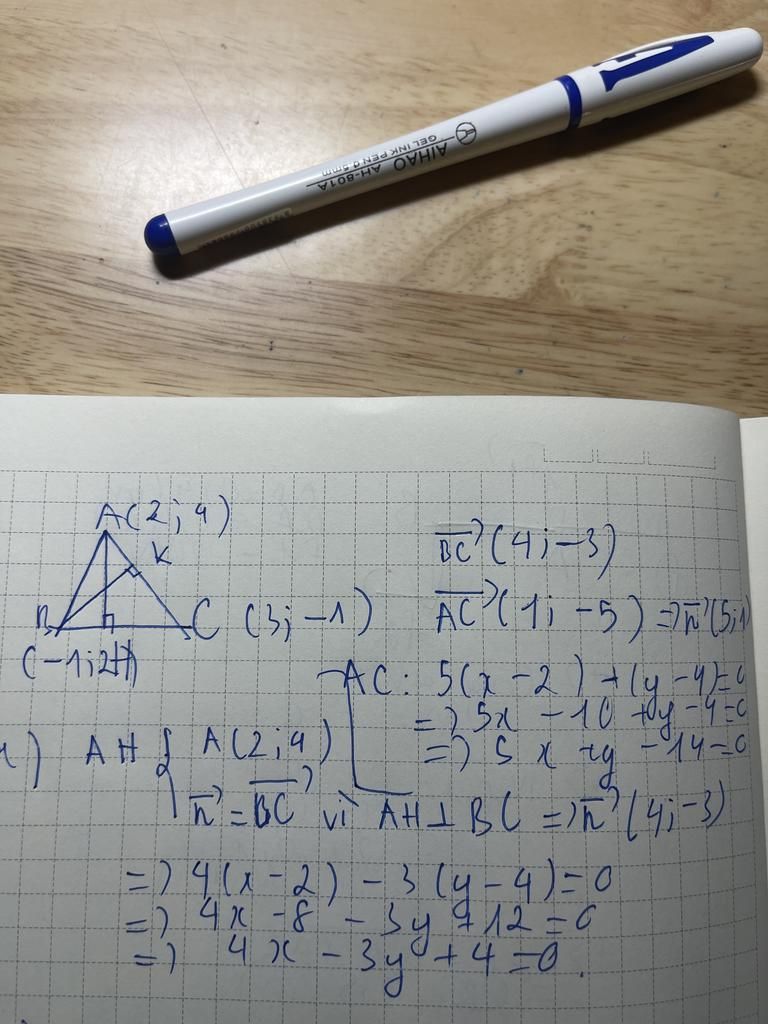 AIHAO AH-801A
GEL INK PEN 0.5mm
A(2; 4)
K
B
H
C (3; -1)
(-1; 2)
BC→ (4; -3)
AC→ (1; -5) => n→ (5; 1)
AC: 5(x - 2) + (y - 4) = 0
=> 5x - 10 + y - 4 = 0
=> 5x + y - 14 = 0
AH { A(2; 4)
n→ = BC→ vì AH ⊥ BC => n→ (4; -3)
=> 4(x - 2) - 3(y - 4) = 0
=> 4x - 8 - 3y + 12 = 0
=> 4x - 3y + 4 = 0.